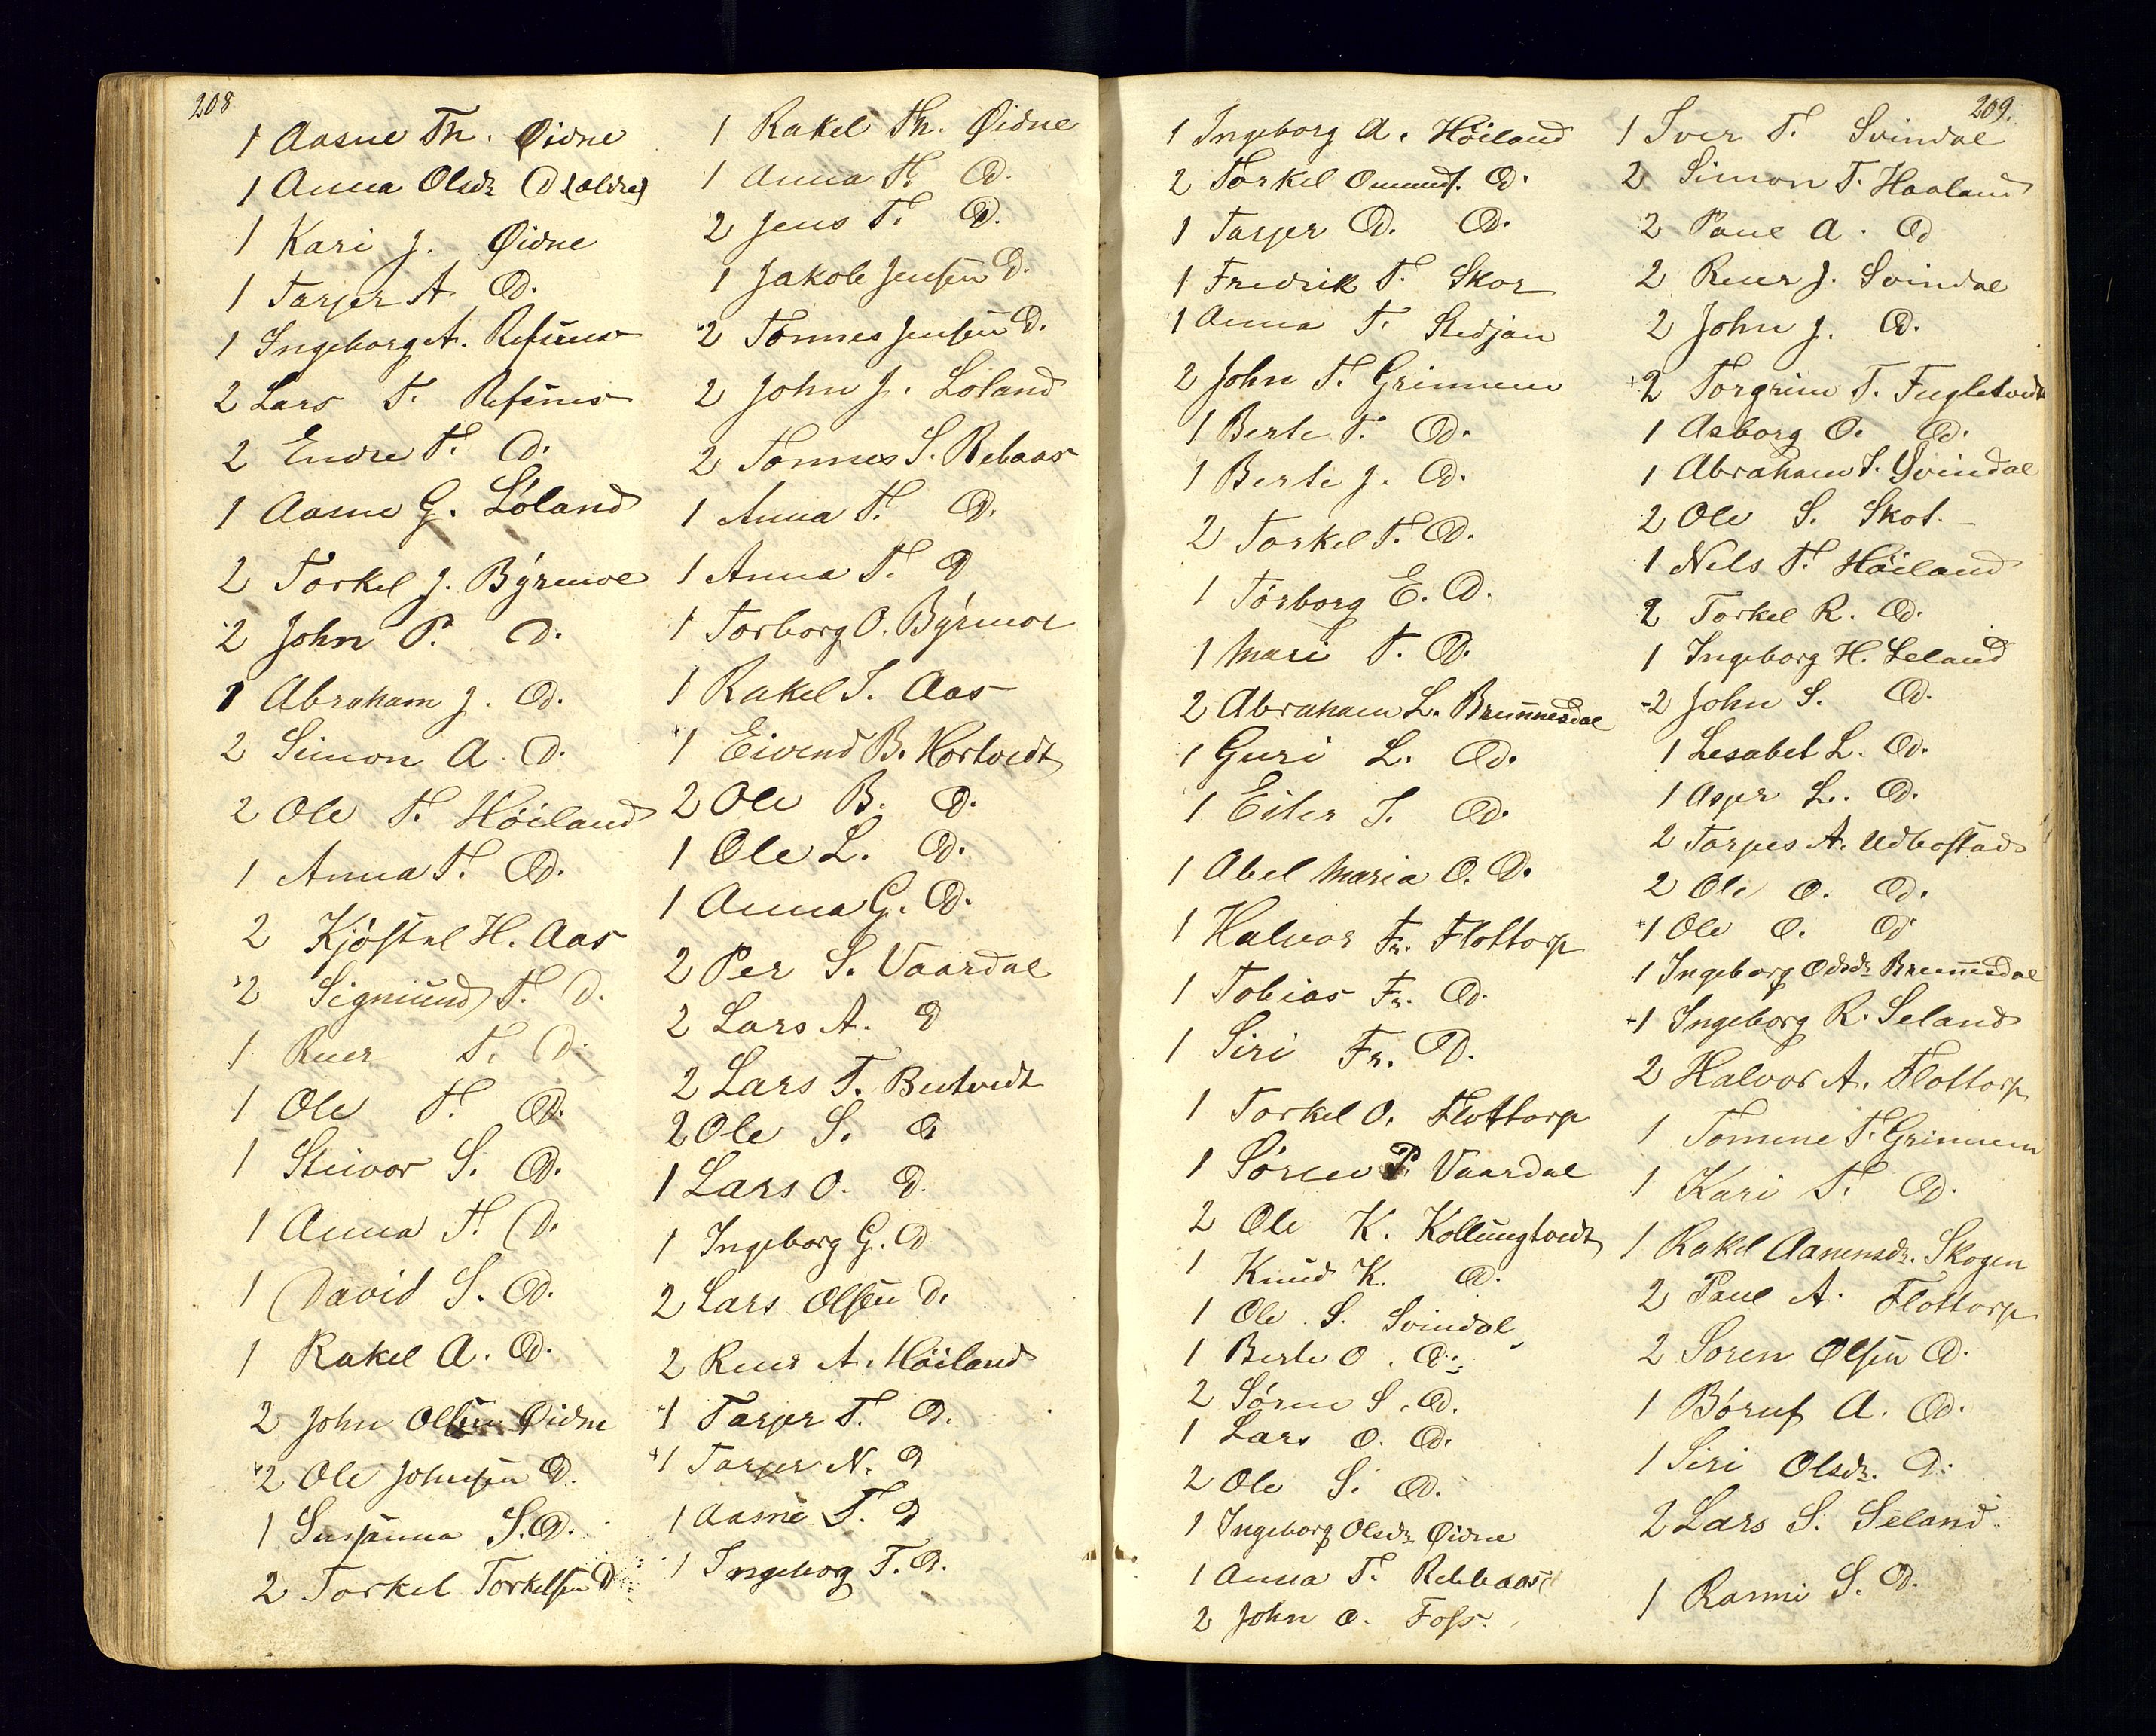 208
1 Aasne Th. Øidne
1 Anna Olsdr D (ældre)
1 Kari J. Øidne
1 Tarjer A. D.
1 Ingeborg A. Refsnes
2 Lars T. Refsnes
2 Endre T. D.
1 Aasne G. Løland
2 Torkel J. Byremoe
2 John P. D.
1 Abraham J. D.
2 Simon A. D.
2 Ole T. Høiland
1 Anna T. D.
2 Kjøstel H. Aas
2 Sigmund T. D.
1 Reier T. D.
1 Ole T. D.
1 Steivor S. D.
1 Anna T. D.
1 David S. D.
1 Rakel A. D.
2 John Olsen Øidne
2 Ole Johnsen D.
1 Susanna S. D.
2 Torkel Torkelsen D
1 Rakel Th. Øidne
1 Anna T. D.
2 Jens T. D.
1 Jakob Jensen D.
2 Tønnes Jensen D.
2 John J. Løland
2 Tønnes S. Rebaas
1 Anna T. D.
1 Anna T. D
1 Torborg O. Byremoe
1 Rakel T. Aas
1 Eivind B. Hortvedt
2 Ole B. D.
1 Ole L. D.
1 Anna G. D.
2 Per S. Vaardal
2 Lars A. D
2 Lars T. Butvedt
2 Ole S. D
1 Lars O. D.
1 Ingeborg G. D
2 Lars Olsen D.
2 Reier A. Høiland
1 Tarjer T. D.
1 Tarjer N. D
1 Aasne T. D
1 Ingeborg T. D.
209.
1 Ingeborg A. Høiland
2 Torkel Omunds. D.
1 Tarjer D. D.
1 Fredrik T. Skor
1 Anna T. Stedjan
2 John T. Grimnem
1 Berte T. D.
1 Berte J. D.
2 Torkel T. D.
1 Torborg E. D.
1 Mari T. D.
2 Abraham L. Brunnesdal
1 Guri L. D.
1 Eiler T. D.
1 Abel Maria O. D.
1 Halvor Fr. Flottorp
1 Tobias Fr. D.
1 Siri Fr. D.
1 Torkel O. Flottorp
1 Søren P Vaardal
2 Ole K. Kollungtvedt
1 Knud K. D.
1 Ole S. Svindal
1 Berte O. D.
2 Søren S. D.
1 Lars O. D.
2 Ole S. D.
1 Ingeborg Olsdr Øidne
1 Anna T. Rebbaas
2 John O. Foss.
1 Iver T. Svindal
2 Simon T. Haaland
2 Paul A. D
2 Reier J. Svindal
2 John J. D.
2 Torgrim T. Fugletvedt
1 Asborg O. D.
1 Abraham T. Svindal
2 Ole S. Skot.
1 Nels T. Høiland
2 Torkel R. D.
1 Ingeborg H. Seland
2 John S. D.
1 Lesabet L. D.
1 Asper L. D.
2 Tarjes A. Udbostad
2 Ole O. D.
1 Ole O. D
1 Ingeborg Odsdr Brunnesdal
1 Ingeborg R. Seland
2 Halvor A. Flottorp
1 Tomine T. Grimnem
1 Kari T. D.
1 Rakel Aanensdr. Skogen
2 Paul A. Flottorp
2 Søren Olsen D.
1 Børuf A. D.
1 Siri Olsdr. D.
2 Lars S. Seland
1 Ranni S. D.